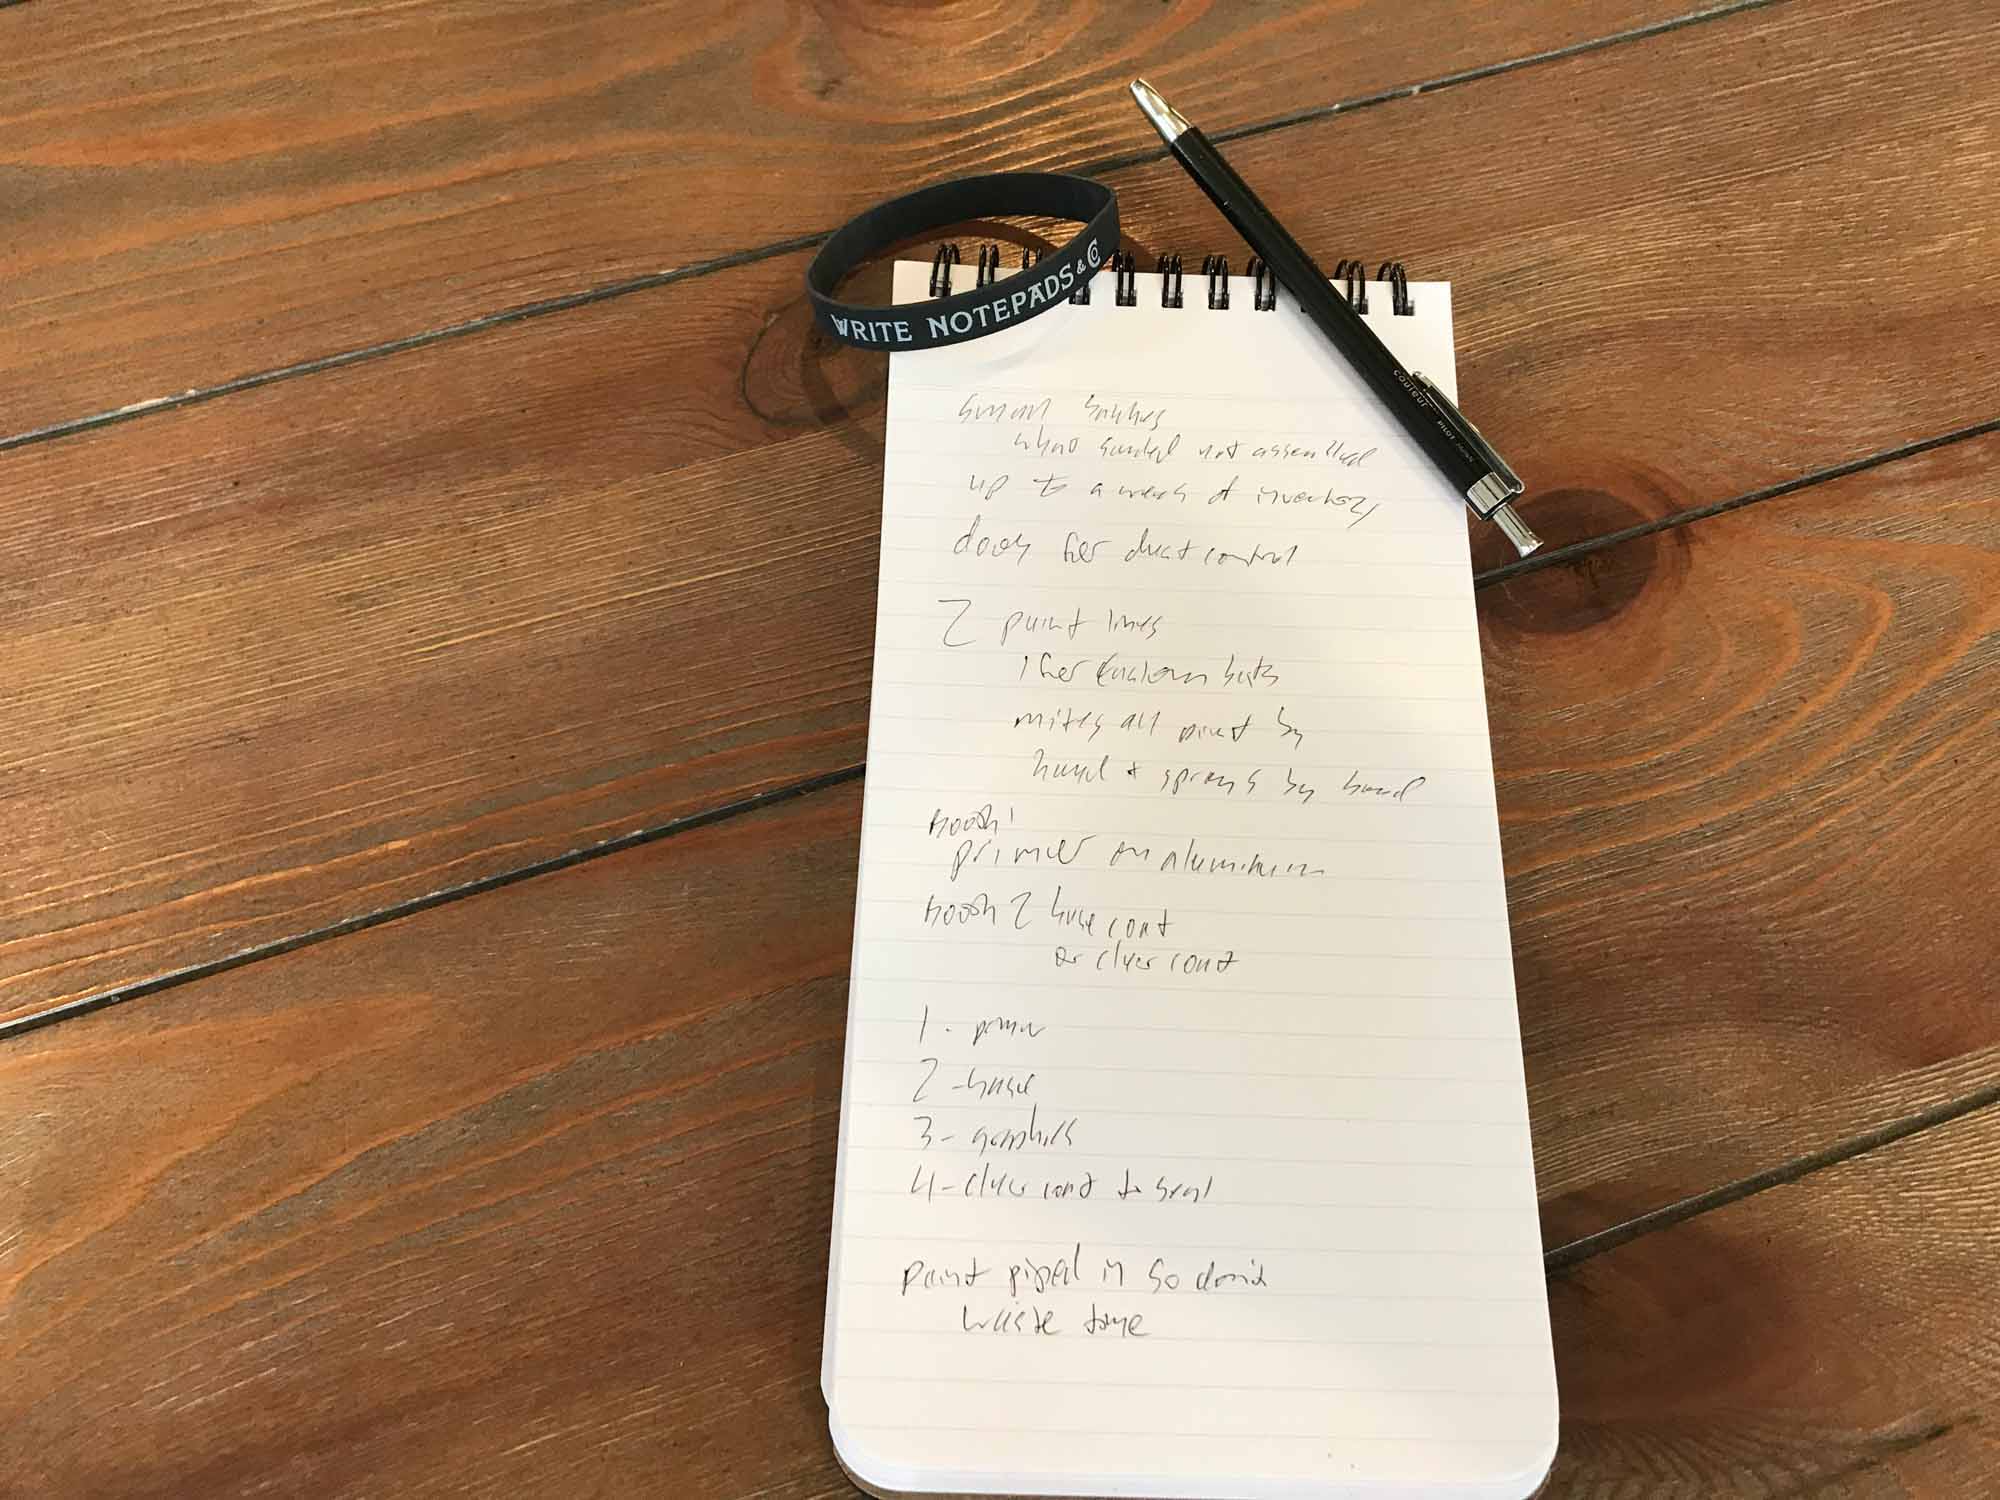 WRITE NOTEPADS & Co
COULEUR PILOT JAPAN
small batches
what sanded not assembled
up to a week of inventory
doors for dust control
2 paint lines
1 for custom
mixes all paint by
hand + sprays by hand
Booth 1
primer on aluminum
Booth 2 base coat
or clear coat
1 - primer
2 - base
3 - graphics
4 - clear coat to seal
paint piped in so don't
waste time